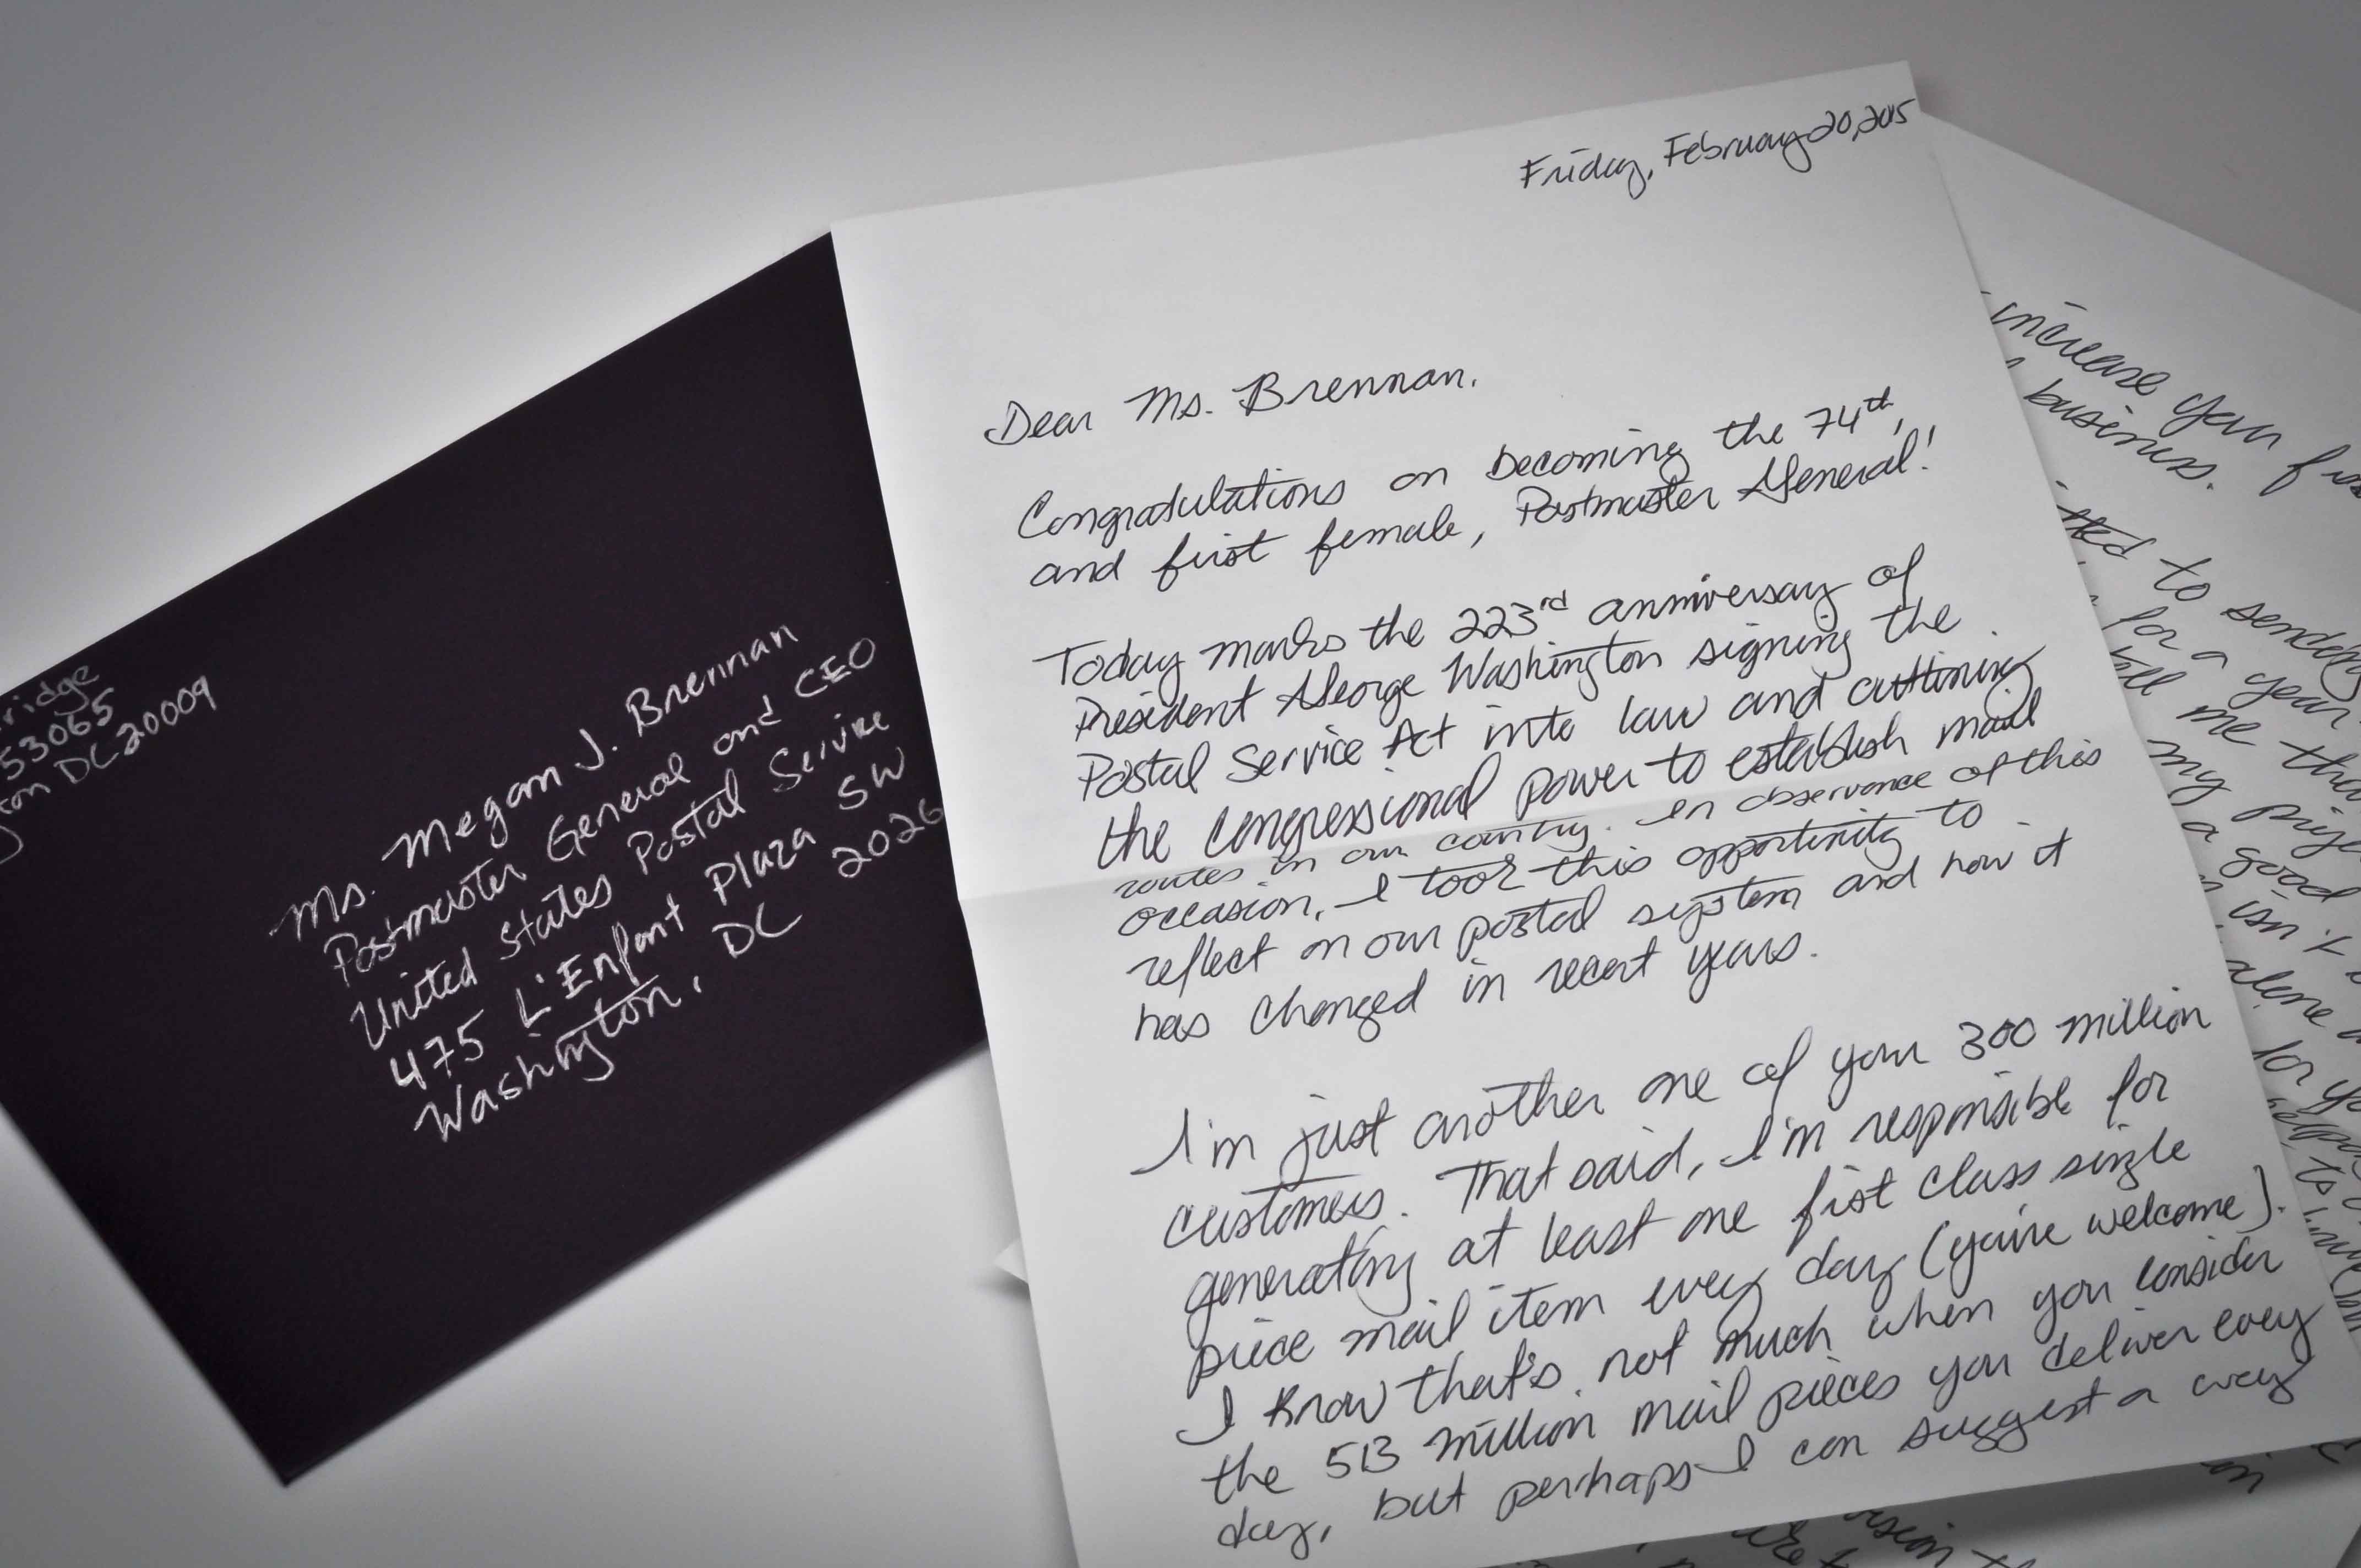 ridge
53065
ton DC 20009
Ms. Megan J. Brennan
Postmaster General and CEO
United States Postal Service
475 L'Enfant Plaza SW
Washington, DC 2026
Friday, February 20, 2015
Dear Ms. Brennan.
Congradulations on becoming the 74th,
and first female, Postmaster General!
Today marks the 223rd anniversary of
President George Washington signing the
Postal Service Act into law and outlining
the congressional power to establish mail
routes in our country. In observance of this
occasion, I took this opportunity to
reflect on our postal system and how it
has changed in recent years.
I'm just another one of your 300 million
customers. That said, I'm responsible for
generating at least one fist class single
piece mail item every day (you're welcome).
I know that's not much when you consider
the 513 million mail pieces you deliver every
day, but perhaps I can suggest a way
increase your
business.
to sending
for a year
tell me tha
my
a good
isn't
alone
for yo
to